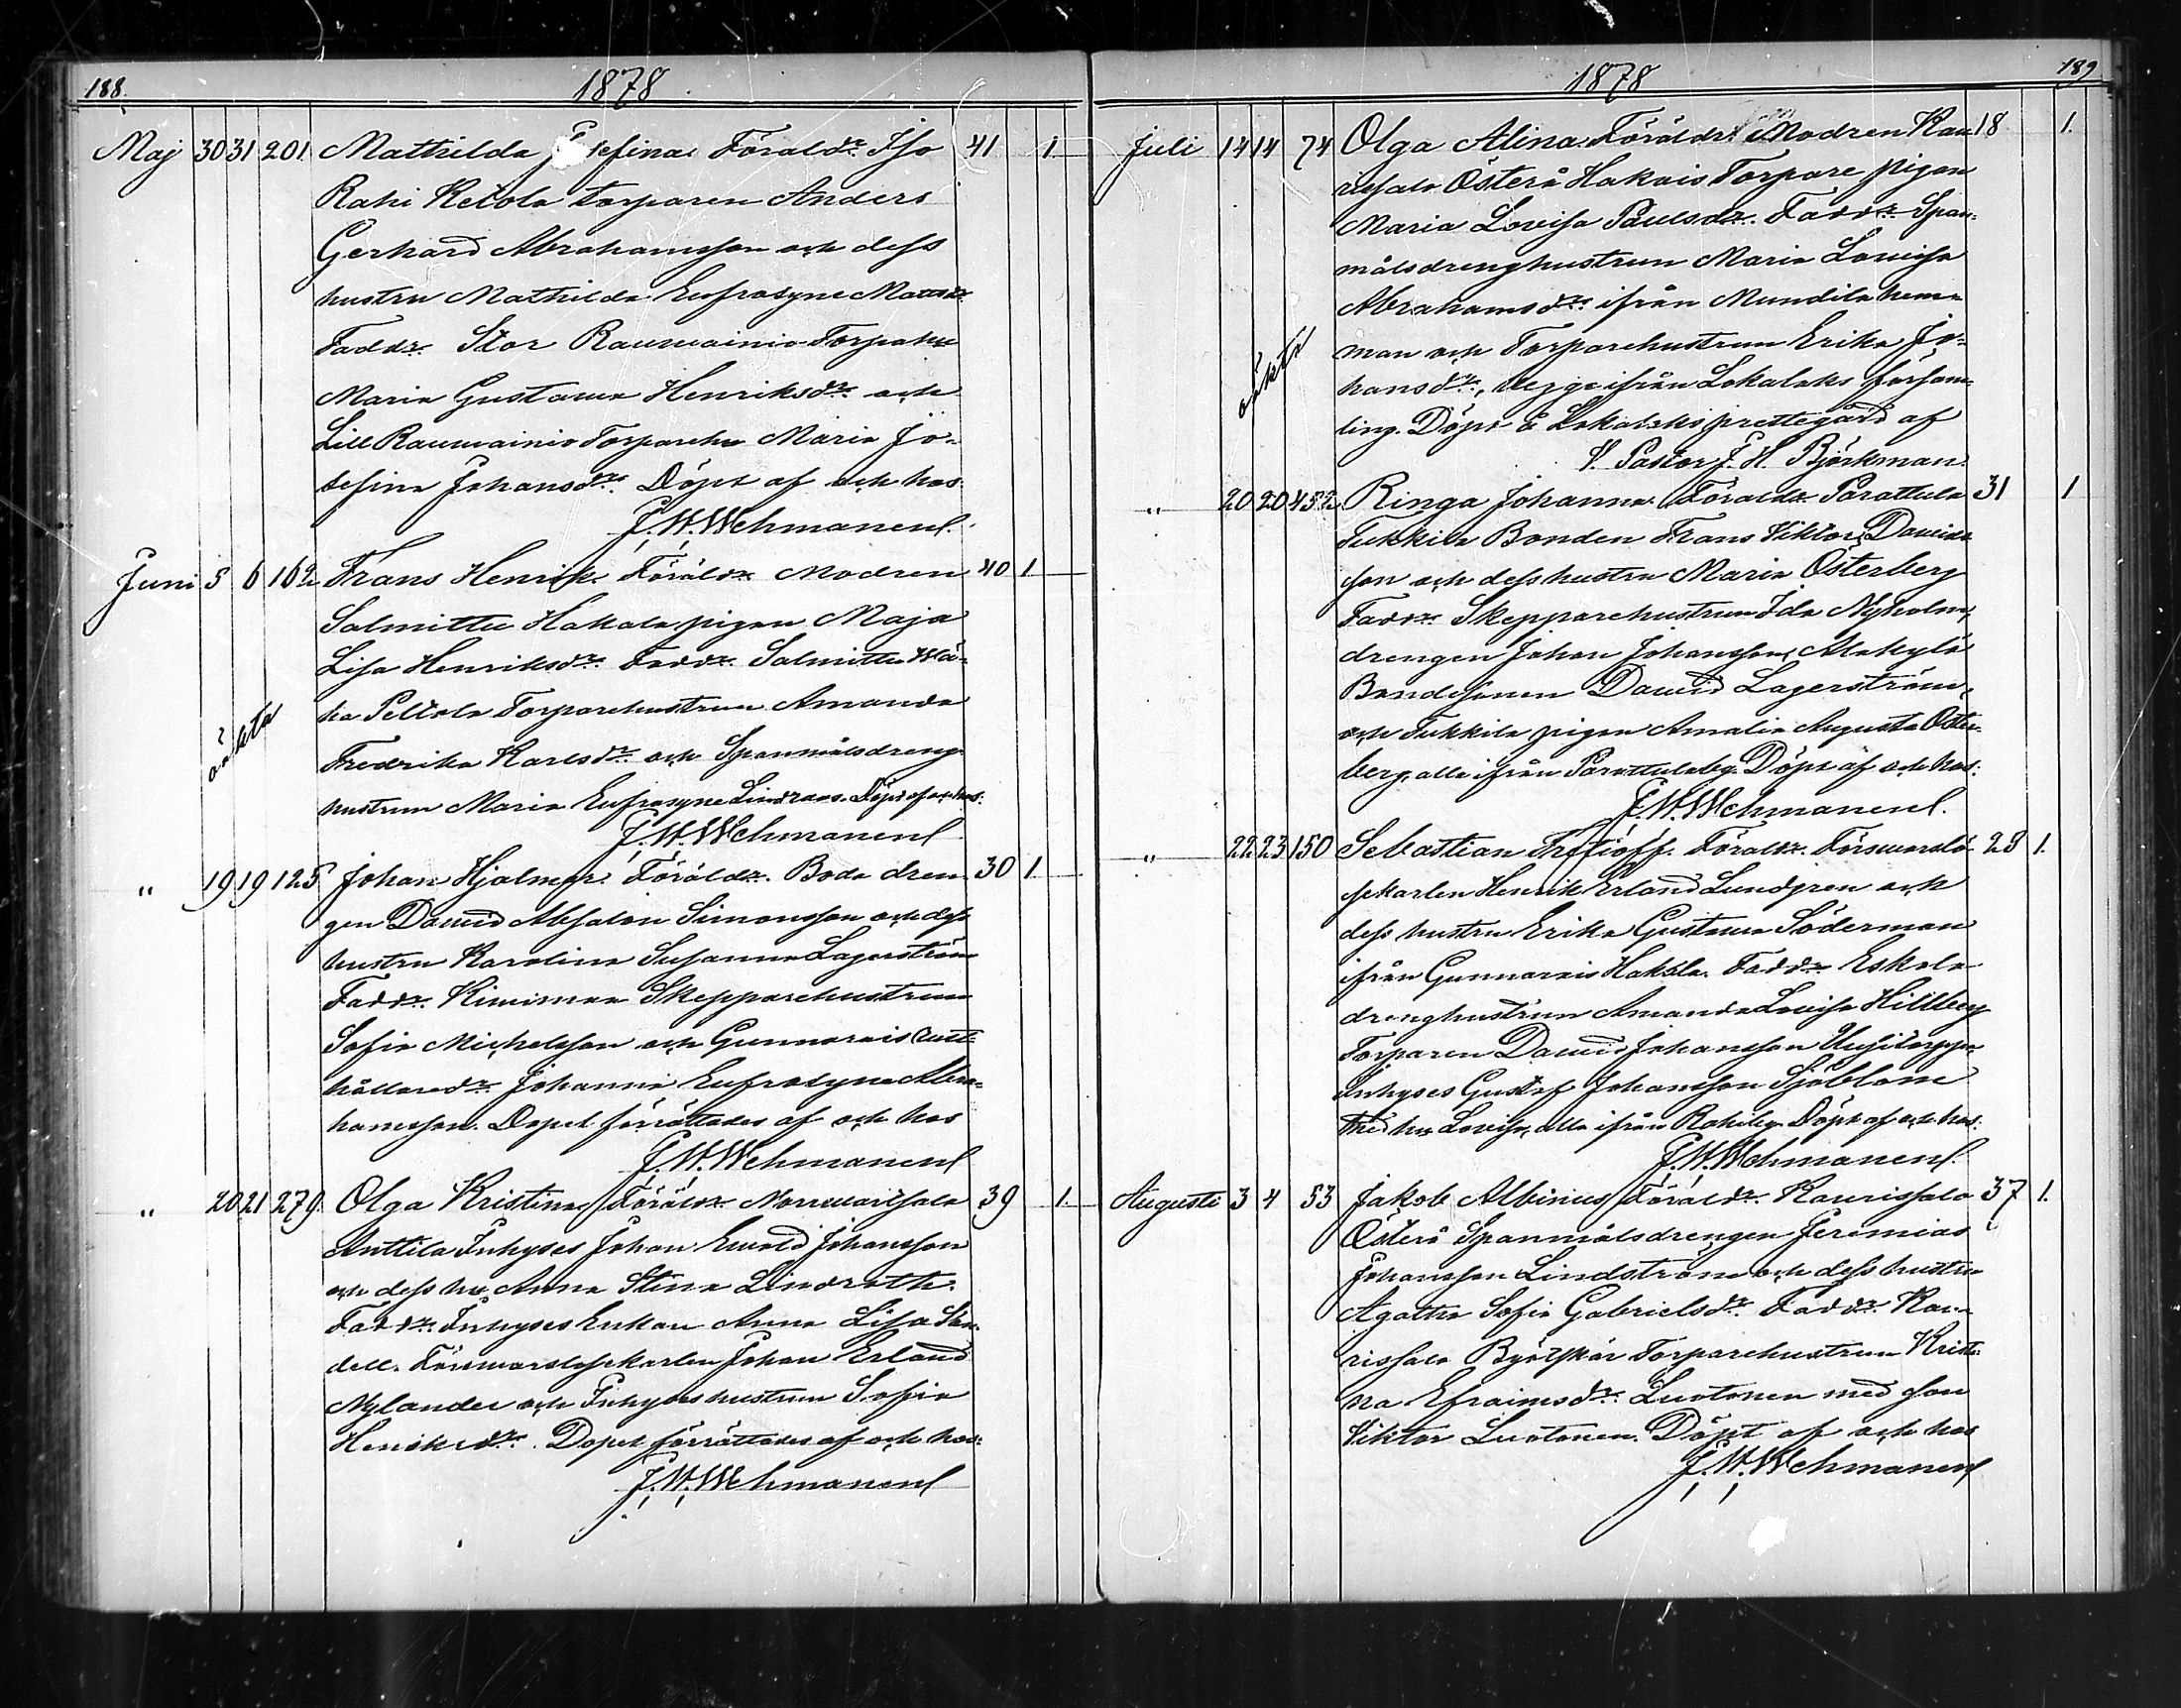 188.
1878.
Maj 30 31 201. Mathilda Josefina. Föräldr. Iso 41 1
Rahi Ketola torparen Anders
Gerhard Abrahamsson och dess
hustru Mathilda Eufrosyne Mattsdr.
Faddr. Stor Rauvainio Torpahu
Maria Gustava Henriksdr. och
Lill Rauvainio Torparehu Maria Jo-
sefina Johansdr. Döpt af och hos:
J. W. Wehmanen.
Juni 5 6 162 Frans Henrik. Föräldr. Modren 40 1
Salmittu Hakala pigan Maja
Lisa Henriksdr. Faddr. Salmittu Wä-
ha Peltola Torparehustrun Amanda
Fredrika Karlsdr. och Spanmålsdreng-
oäkta
hustrun Maria Eufrosyne Lindroos. Döpt af och hos:
J. W. Wehmanen
" 19 19 125 Johan Hjalmar. Föräldr. Boda dren 30 1
gen David Absalon Simonsson och dess
hustru Karolina Susanna Lagerström
Faddr. Kiwimaa Skepparehustrun
Sofia Michelsson och Gunnarais rust-
hållaredr. Johanna Eufrosyne Abra-
hamsson. Dopet förrättades af och hos
J. W. Wehmanen
" 20 21 279. Olga Kristina. Föräldr. Norrvartsala 39 1.
Anttila Inhyses Johan Ewald Johansson
och dess hu Anna Stina Lindroth.
Faddr. Inhyses Enkan Anna Lisa
dell. Försvarslösekarlen Johan Erland
Nylander och Inhyseshustrun Sofia
Henriksdr. Dopet förrättades af och hos:
J. W. Wehmanen
189
1878
Juli 14 14 74 Olga Alina. Föräldr. Modren Kau 18 1.
rissalo Österå Hakais Torpare pigan
Maria Lovisa Paulsdr. Faddr. Span-
målsdrenghustrun Maria Lovisa
Abrahamsdr. ifrån Mundila hem-
man och Torparehustrun Erika Jo-
oäkta
hansdr., begge ifrån Lokalaks försam-
ling. Döpt å Lokalaks prestegård af
V. Pastor J. H. Björkman.
" 20 20 452 Ringa Johanna. Föräldr. Parattula 31 1
Tukkila Bonden Frans Viktor Davids
son och dess hustru Maria Österberg
Faddr. Skepparehustrun Ida Nyholm,
drengen Johan Johansson, Alakylä
Bondesonen David Lagerström,
och Tukkila pigan Amalia Augusta Öster-
berg, alla ifrån Parattula by. Döpt af och hos:
J. W. Wehmanen.
" 22 23 150 Sebastian Trofioff. Föräldr. Försvarslö- 23 1.
sekarlen Henrik Erland Lundgren och
dess hustru Erika Gustava Söderman
ifrån Gunnarais Hakala. Faddr. Eskola
drenghustrun Amanda Lovisa Hillberg
Torparen David Johansson Uusitorppa,
Inhyses Gustaf Johansson Sjöblom
med hu Lovisa, alla ifrån Rahi by. Döpt af och hos:
J. W. Wehmanen.
Augusti 3 4 53 Jakob Albinus. Föräldr. Kaurissalo 37 1.
Österå Spanmålsdrengen Jeremias
Johansson Lindström och dess hustru
Agatha Sofia Gabrielsdr. Faddr. Kau-
rissalo Torparehustrun Kristi-
na Efraimsdr. Luotonen med son
Viktor Luotonen. Döpt af och hos
J. W. Wehmanen